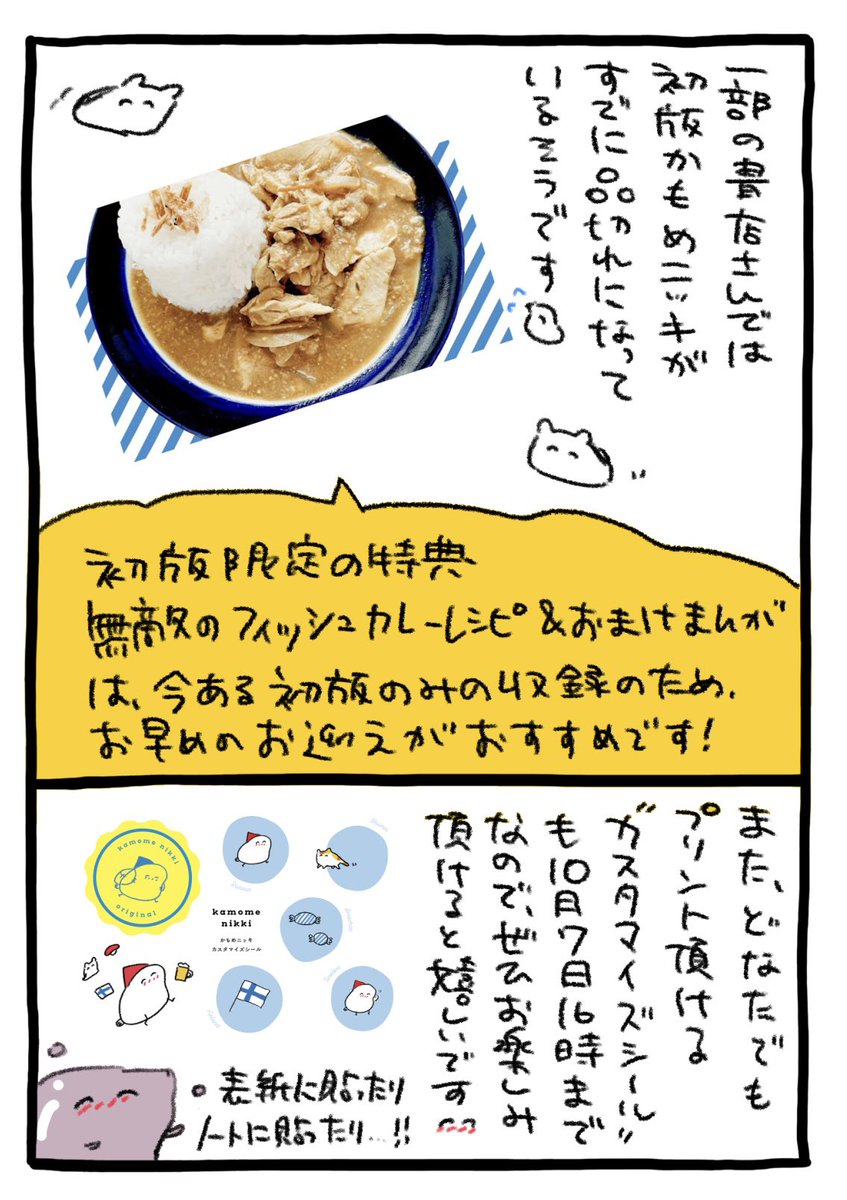 一部の書店さんでは
初版かもめニッキが
すでに品切れになって
いるそうです
初版限定の特典
無敵のフィッシュカレーレシピ&おまけまんが
は、今ある初版のみの収録のため、
お早めのお迎えがおすすめです!
また、どなたでも
プリント頂ける
"カスタマイズシール"
も10月7日16時まで
なので、ぜひお楽しみ
頂けると嬉しいです
kamome nikki
original
kamome
nikki
かもめニッキ
カスタマイズシール
表紙に貼ったり
ノートに貼ったり…!!